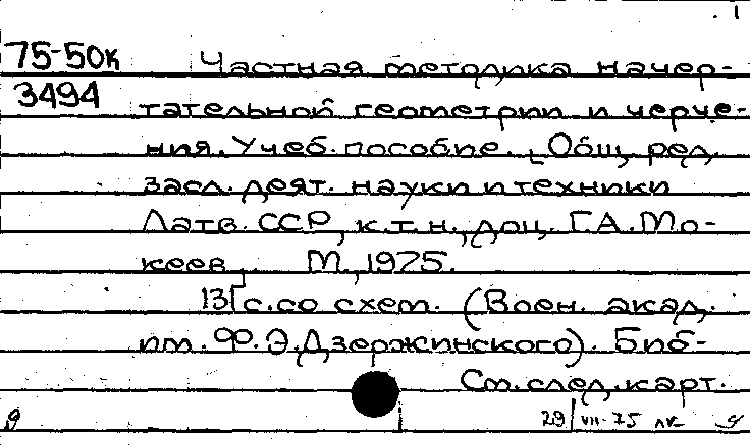 75-50к Частная методика начер-
3494 тательной геометрии и черче-
ния. Учеб. пособие. [Общ. ред.
засл. деят. науки и техники
Латв. ССР, к.т.н., доц. Г.А. Мо-
кеев]. М., 1975.
131 с. со схем. (Воен. акад.
им. Ф.Э. Дзержинского). Биб-
См. след. карт.
29/VII-75